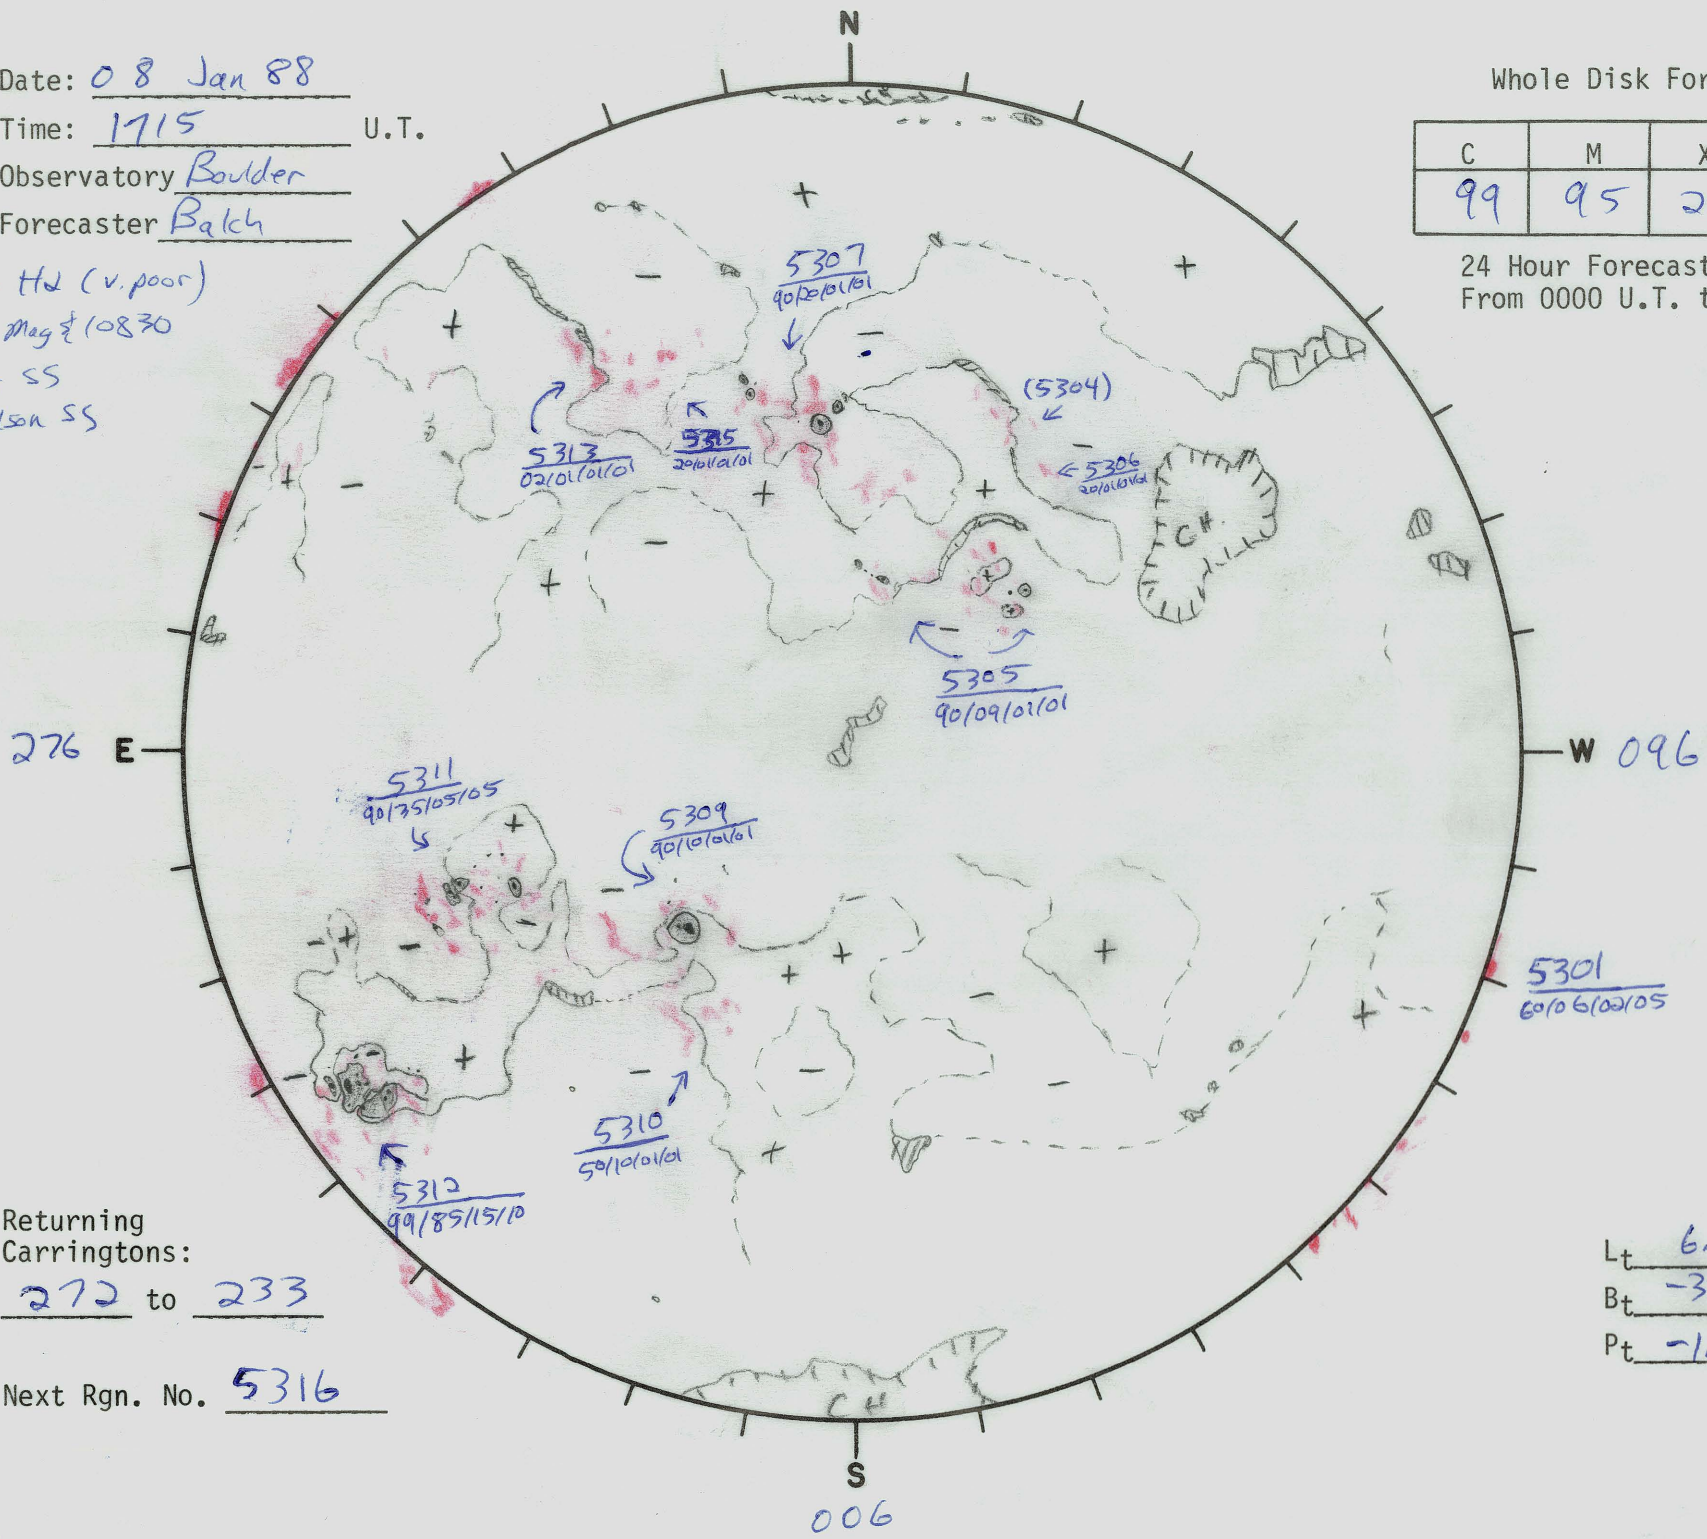 N
Date: 08 Jan 88
Time: 1715 U.T.
Observatory Boulder
Forecaster Balch
Hα (v. poor)
Mag & 10830
SS
SS
Whole Disk For
C M X
99 95 2
24 Hour Forecast
From 0000 U.T. t
+
-
+
+
-
5307
90/20/01/01
(5304)
-
5306
20/01/01/01
5313
02/01/01/01
5315
20/01/01/01
-
+
-
+
+
-
+
CH.
-
5305
90/09/01/01
276 E
W 096
5311
90/35/05/05
5309
90/10/01/01
+
-
-
-
+
-
+
+
-
+
+
5301
60/06/02/05
-
+
-
-
-
5310
50/10/01/01
+
5312
99/85/15/10
Returning
Carringtons:
272 to 233
Next Rgn. No. 5316
Lt 6.
Bt -3
Pt -1
CH
S
006